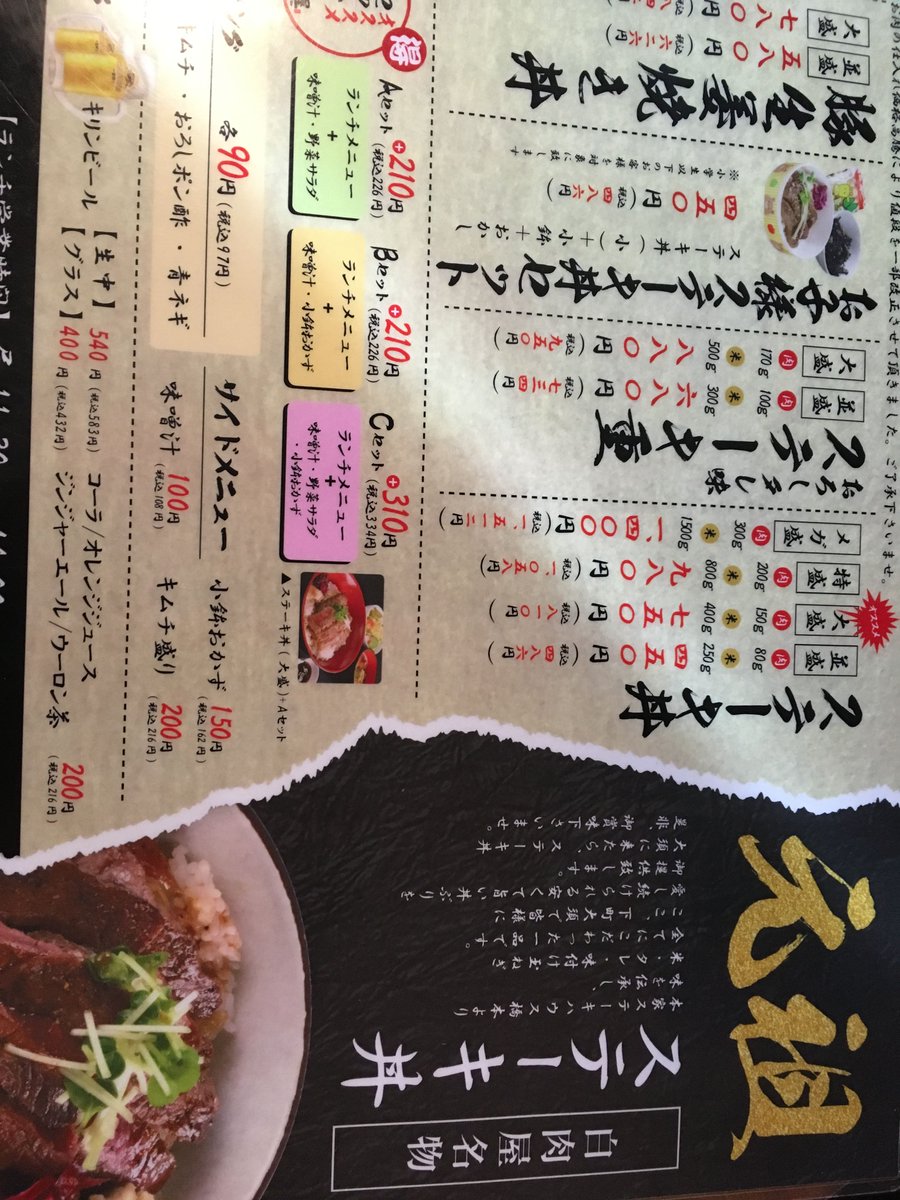 元祖
ステーキ丼
白肉屋名物
本家ステーキハウス橋本より
味を伝承し、
米・タレ・味付け玉ねぎ
全てにこだわった一品です。
ここ、下町大須で皆様に
愛され続ける安くて旨い丼ぶりを
御提供致します。
大須に来たら、ステーキ丼
是非、御賞味下さいませ。
お肉の仕入れ価格高騰により値段を一部改正させて頂きました。ご了承下さいませ。
ステーキ丼
並盛 肉 80g 米 250g 四五〇円 (税込 四八六円)
オススメ
大盛 肉 150g 米 400g 七五〇円 (税込 八一〇円)
特盛 肉 200g 米 800g 九八〇円 (税込 一、〇五八円)
メガ盛 肉 300g 米 1500g 一、四〇〇円 (税込 一、五一二円)
ステーキ重
並盛 肉 100g 米 300g 六八〇円 (税込 七三四円)
大盛 肉 170g 米 500g 八八〇円 (税込 九五〇円)
お子様ステーキ丼セット
ステーキ丼(小)+小鉢+おかし
四五〇円 (税込 四八六円)
※小学生以下のお客様を対象に致します
豚生姜焼き丼
並盛 五八〇円 (税込 六二六円)
大盛 七八〇円
得
オススメ
Aセット +210円 (税込226円)
ランチメニュー
+
味噌汁・野菜サラダ
Bセット +210円 (税込226円)
ランチメニュー
+
味噌汁・小鉢おかず
Cセット +310円 (税込334円)
ランチメニュー
+
味噌汁・野菜サラダ
・小鉢おかず
▲ステーキ丼(大盛)+Aセット
各90円 (税込97円)
キムチ・おろしポン酢・青ネギ
サイドメニュー
小鉢おかず 150円 (税込162円)
味噌汁 100円 (税込108円)
キムチ盛り 200円 (税込216円)
キリンビール
【生中】 540円 (税込583円)
【グラス】 400円 (税込432円)
コーラ/オレンジジュース
ジンジャーエール/ウーロン茶 200円 (税込216円)